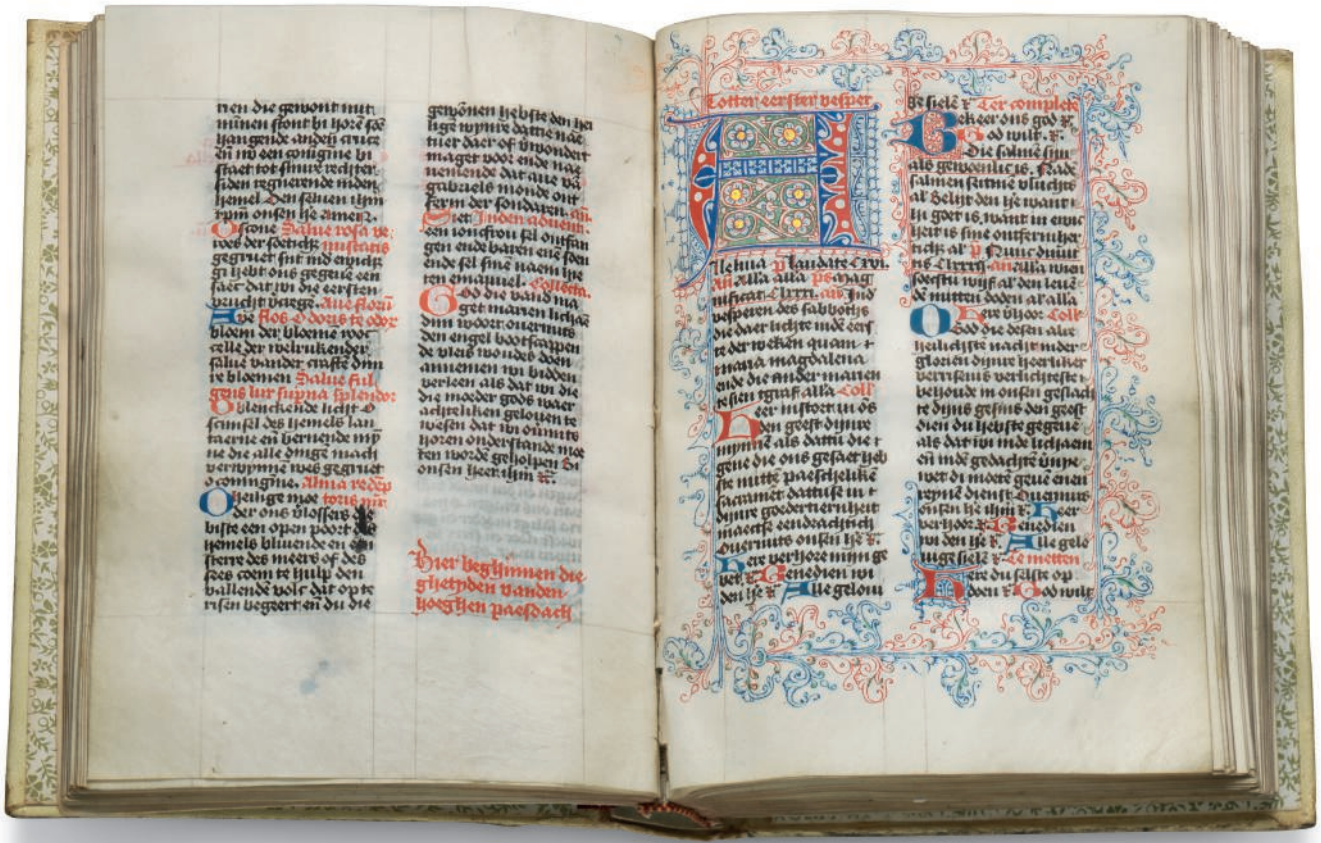 nen die gewont mit
minnen stont bi horē sōe
hangende anden cruce
eñ nv een conigīne bi
staet tot sinre rechter
siden regnerende inden
hemel Den seluen ihm
xpm onsen hē Amē R.
O scone Salue rosa ve
roes der soeticħ nustatis
gegruet sijt
gi hebt ons gegeuē een
saet dat wi die eersten
vrucht Aue florū
Ave flos O doris te odor
bloem der bloemē
celle der welrukender
salue vander craftē dijn
re bloemen Salue ful
gens lux supna splendor
O blenckende licht O
scinsel des hemels lan
taerne eñ bernende
ne die alle dingē mach
verwinnen wes gegruet
o conīgīne. Alma redēp
O heilige moe toris
der ons vlossers die
biste een open poort des
hemels bliuende eñ een
sterre des meers of des
sees coem te hulp den
vallende volc dat op te
risen begeert eñ du die
gewōnen hebste den hei
lige dattie nae
tuer daer of verwondert
maget voor ende nae
nemende dat aue vā
gabriels monde ont
ferm der sondaren
Siet Inden aduent
een ioncfrou sel ontfan
gen ende baren enē soen
ende sel sinē naem hie
ten emanuel. Collecta.
God die vand ma
get marien lichaē
dijn woert ouermits
den engel bootscappen
de vleis woudes doen
annemen wi bidden
verleen als dat wi die
die moeder gods waer
achteliken gelouen te
wesen dat wi oumits
horen onderstande moe
ten wordē geholpen Bi
onsen heer ihm R.
Hier beghinnen die
ghetyden vanden
hoeghen paesdach
Totter eerster vesper
A
lleluia p̄ laudate Cxvi.
Añ Alla alla ps mag
nificat Lxxxi. añ Ind
vesperen des sabboths
die daer lichte indē eers
te der weken quam
maria magdalena
ende die ander marien
te sien tgraf alla Coll
Heer instort in ōs
den geest dijnre
mynnē als dattu die
gene die ons gesaet heb
ste mittē paeschelikē
sacramēt dattuse in
dijnre goedertierenheit
maectse eendrachtich
Ouermits onsen hē R.
Here verhore mijn ge
bet R Benedien wi
den hē R Alle gelou
ge sielē R Ter complete
Bekeer ons god R
God wilt. R.
Die salmē sijn
als gewoenlic is. Nade
salmen seitmē
Belijt den hē want
hi goet is, want in ewic
heit is sine ontfermher
ticħ al p̄ Nunc dimit
tis Añ Alla
al den leuē
de mitten doden al alla
Heer Coll
O God die desen alre
heilichste nacht mder
glorien dijnre heerliker
verrisenis verlichteste
behoude in onsen geslach
te dijns gesins den geest
dien du hebste gegeuē
als dat wi inde lichaem
eñ indē gedachtē vnye
wet di moetē geuē enen
reynē dienst Ouermits
onsen hē ihm R Heer
verhoer R Benedien
wi den hē R Alle gelo
uige sielē R Te metten
Here du selste op
doen R God wilt